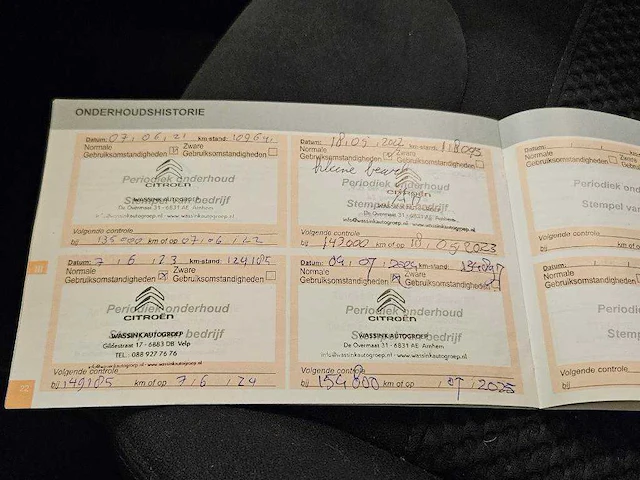 ONDERHOUDSHISTORIE
Datum: 07, 06, 21 km-stand:
Normale Zware
Gebruiksomstandigheden Gebruiksomstandigheden
Periodiek onderhoud
CITROËN
WASSINK AUTOGROEP
De Overmaat 31 - 6831 AE Arnhem
www.wassinkautogroep.nl
Volgende controle
bij 135000 km of op 07, 06, 22
Datum: 18, 05, 2022 km-stand: 118093
Normale Zware
Gebruiksomstandigheden Gebruiksomstandigheden
kleine beurt
Periodiek onderhoud
CITROËN
WASSINK AUTOGROEP
De Overmaat 31 - 6831 AE Arnhem
info@wassinkautogroep.nl - www.wassinkautogroep.nl
Volgende controle
bij 142000 km of op 18, 05, 2023
Datum: 7, 6, 23 km-stand: 124185
Normale Zware
Gebruiksomstandigheden Gebruiksomstandigheden
Periodiek onderhoud
CITROËN
bedrijf
WASSINK AUTOGROEP
Gildestraat 17 - 6883 DB Velp
TEL.: 088 927 76 76
www.wassinkautogroep.nl
Volgende controle
bij 149185 km of op 7, 6, 24
Datum: 09, 07, 2024 km-stand: 134897
Normale Zware
Gebruiksomstandigheden Gebruiksomstandigheden
Periodiek onderhoud
CITROËN
bedrijf
WASSINK AUTOGROEP
De Overmaat 31 - 6831 AE Arnhem
info@wassinkautogroep.nl - www.wassinkautogroep.nl
Volgende controle
bij km of op 07, 2025
Datum:
Normale
Gebruiksomstandigheden
Periodiek onderhoud
Stempel van
Volgende controle
bij km of op
Datum:
Normale
Gebruiksomstandigheden
Periodiek
Stempel
Volgende controle
bij km of op